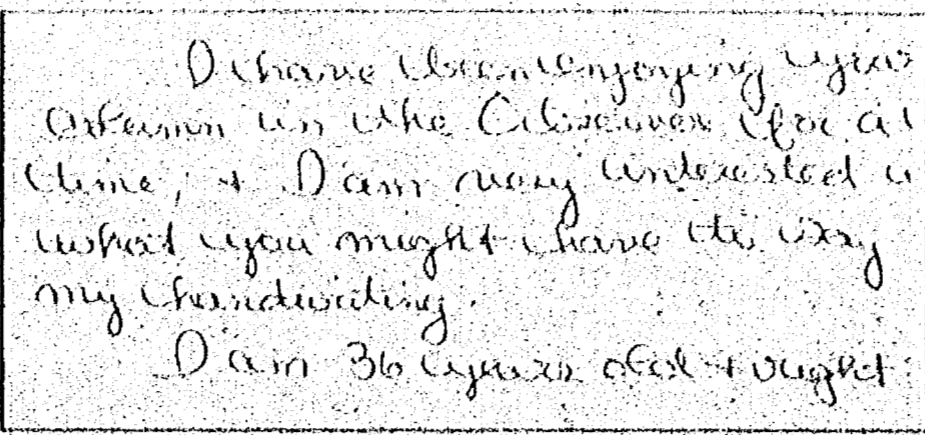 I have been enjoying your
column in the Observer for a
time, + I am very interested i
what you might have to say
my handwriting.
I am 36 years old + right